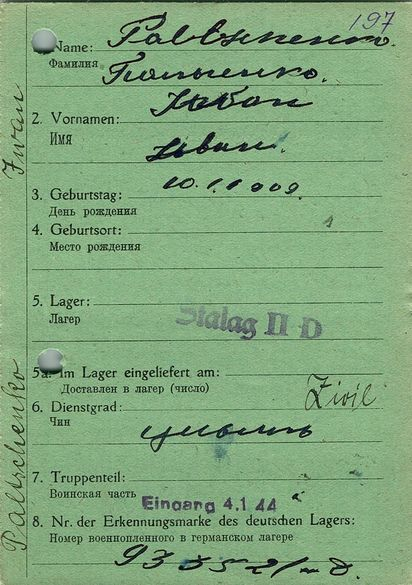 197
1. Name: Paltschenko.
Фамилия Пальченко.
2. Vornamen: Iwan
Имя Иван.
3. Geburtstag: 10.1.1909.
День рождения
4. Geburtsort:
Место рождения
5. Lager: Stalag II D
Лагер
5a. Im Lager eingeliefert am:
Доставлен в лагер (число)
6. Dienstgrad: Zivil
Чин цывиль
7. Truppenteil:
Воинская часть Eingang 4.1.44
8. Nr. der Erkennungsmarke des deutschen Lagers:
Номер военнопленного в германском лагере
Paltschenko Iwan